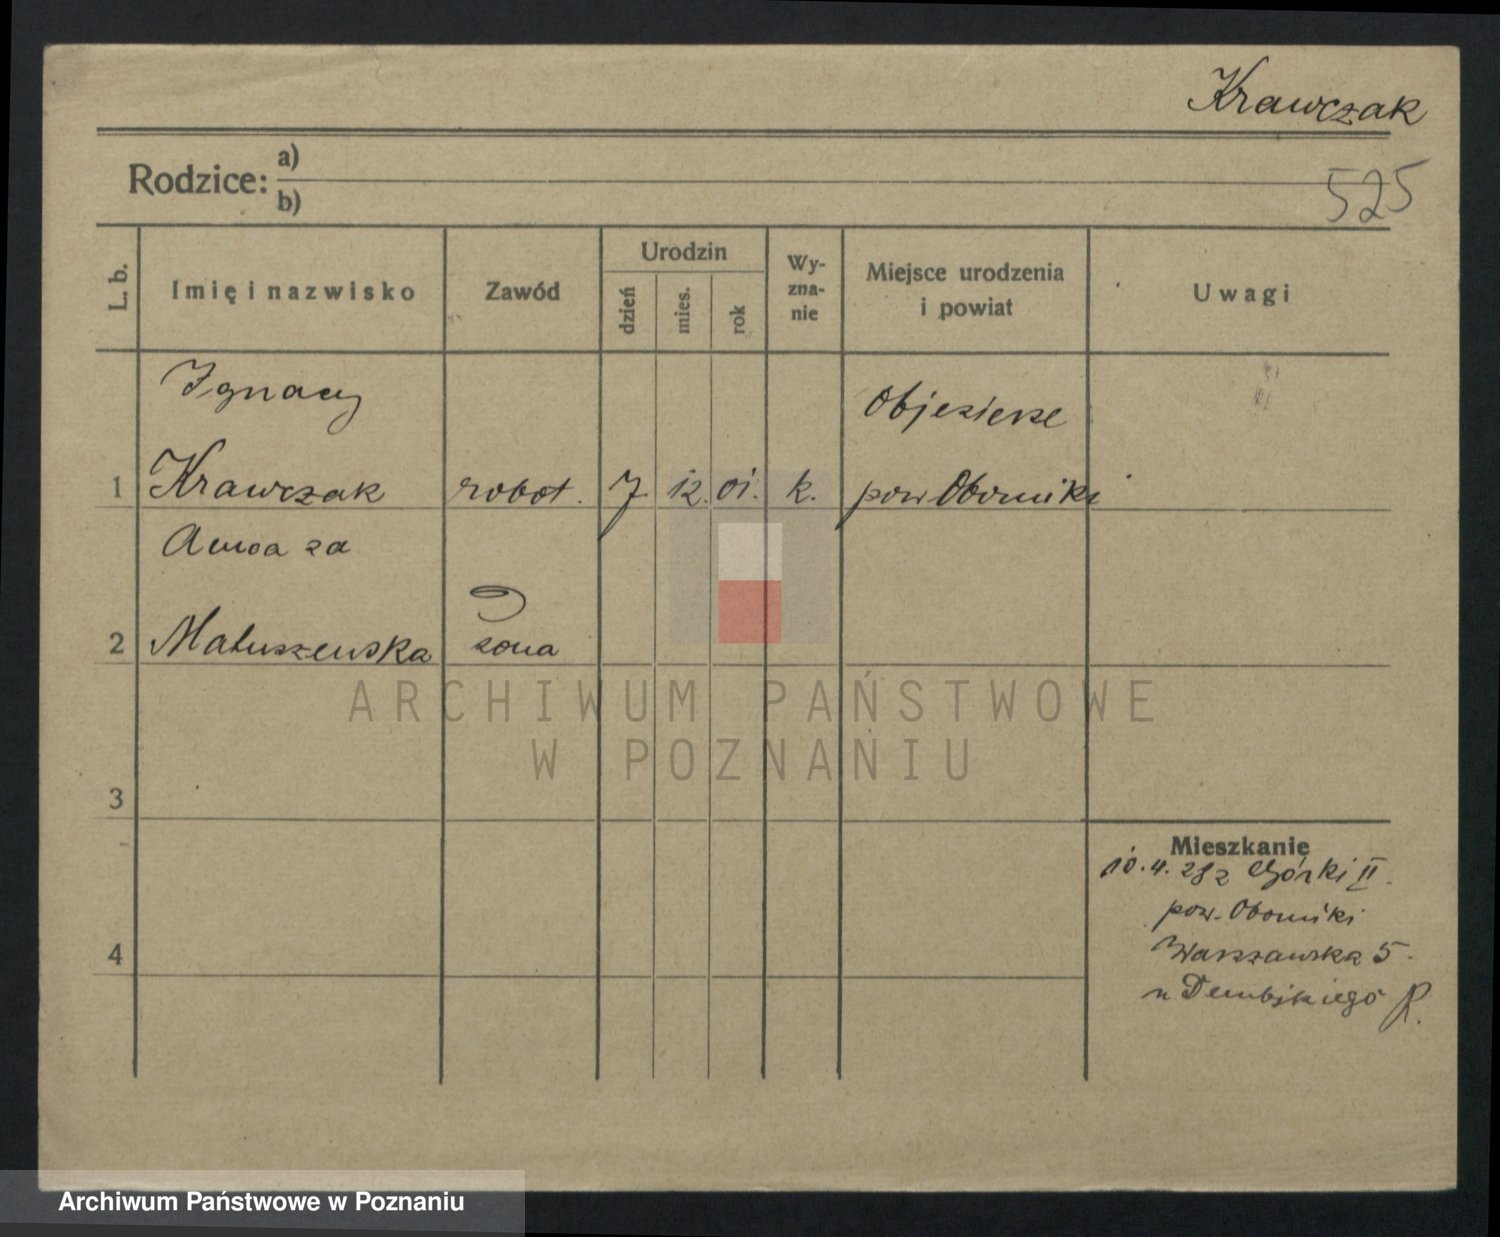 Krawczak
Rodzice: a)
b)
525
L. b.
Imię i nazwisko
Zawód
Urodzin
dzień
mies.
rok
Wy-
zna-
nie
Miejsce urodzenia
i powiat
Uwagi
Ignacy
Objezierze
1 Krawczak robot. 7 12. 01. k. pow Oborniki
Anna za
2 Matuszewska żona
3
4
Mieszkanie
10.4. 28 z Górki II.
pow. Oborniki
Warszawska 5.
u Dembskiego R.
ARCHIWUM PAŃSTWOWE
W POZNANIU
Archiwum Państwowe w Poznaniu